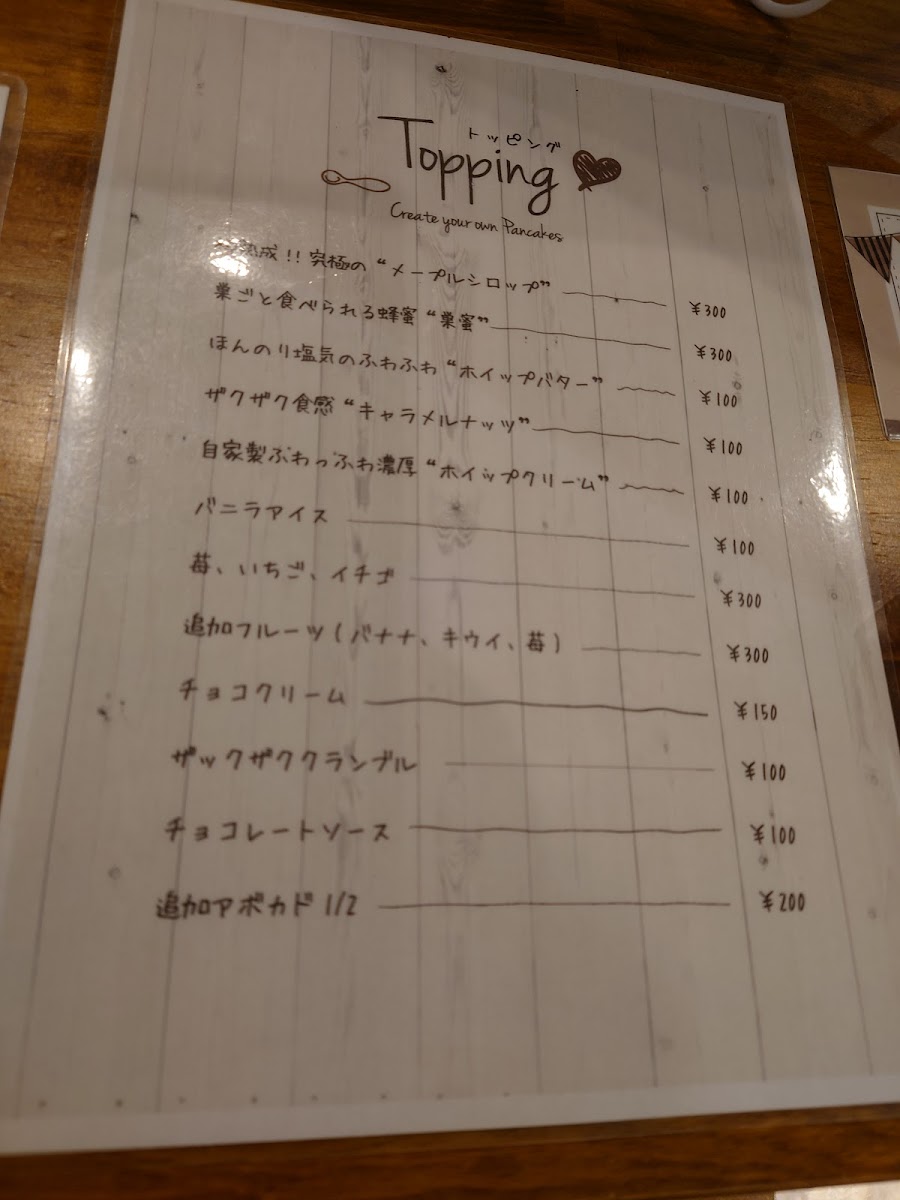 トッピング
Topping
Create your own Pancakes
熟成!! 究極の "メープルシロップ" ¥300
巣ごと食べられる蜂蜜 "巣蜜" ¥300
ほんのり塩気のふわふわ "ホイップバター" ¥100
ザクザク食感 "キャラメルナッツ" ¥100
自家製ふわっふわ濃厚 "ホイップクリーム" ¥100
バニラアイス ¥100
苺、いちご、イチゴ ¥300
追加フルーツ(バナナ、キウイ、苺) ¥300
チョコクリーム ¥150
ザックザククランブル ¥100
チョコレートソース ¥100
追加アボカド 1/2 ¥200